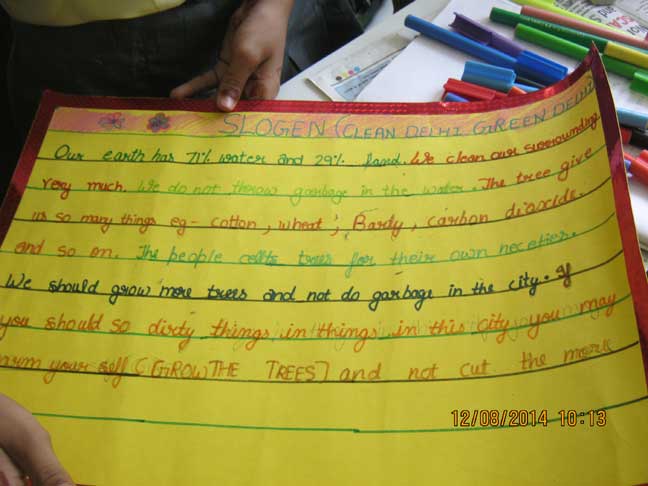 SLOGEN (CLEAN DELHI GREEN DELHI
Our earth has 71% water and 29% land. We clean our surrounding
very much. We do not throw garbage in the water. The tree give
us so many things eg- cotton, wheat, Bardy, carbon dioxide.
and so on. The people cutts trees for their own neceties.
We should grow more trees and not do garbage in the city. If
you should so dirty things in things in this city you may
arm your self (GROW THE TREES] and not cut the more
12/08/2014 10:13